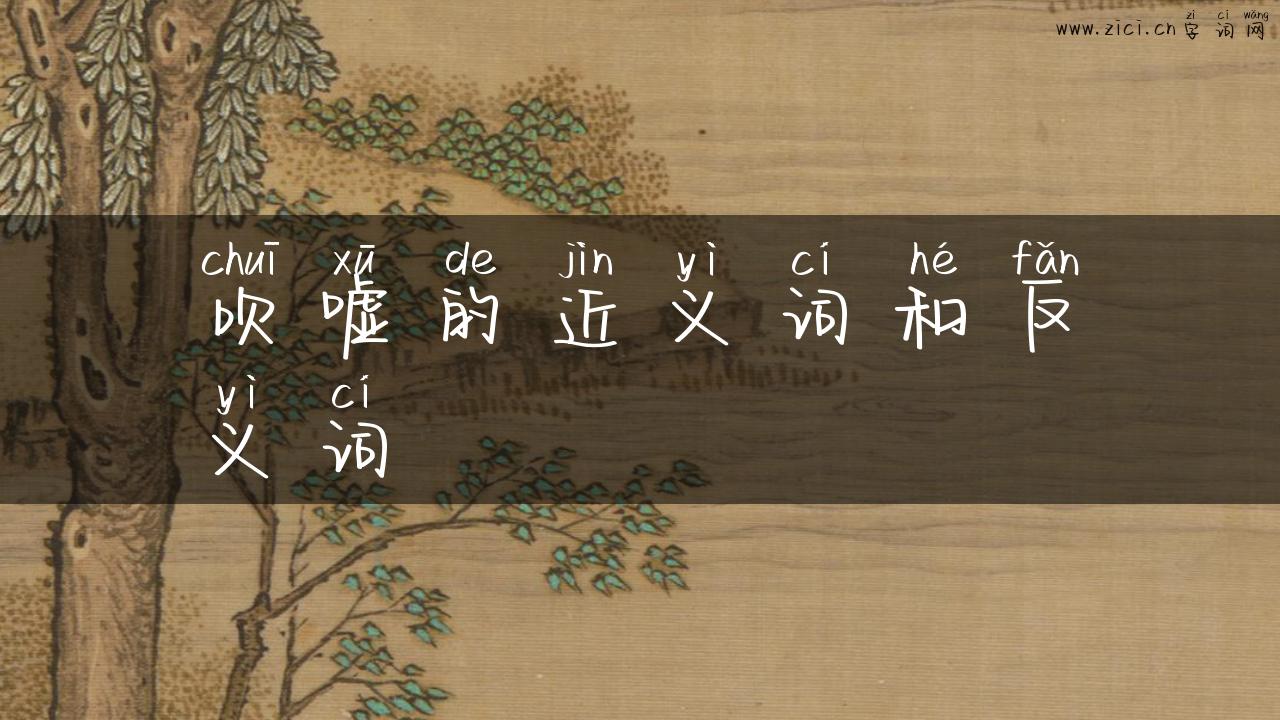 zì cí wǎng
www.zici.cn 字词网
chuī xū de jìn yì cí hé fǎn
吹嘘的近义词和反
yì cí
义词